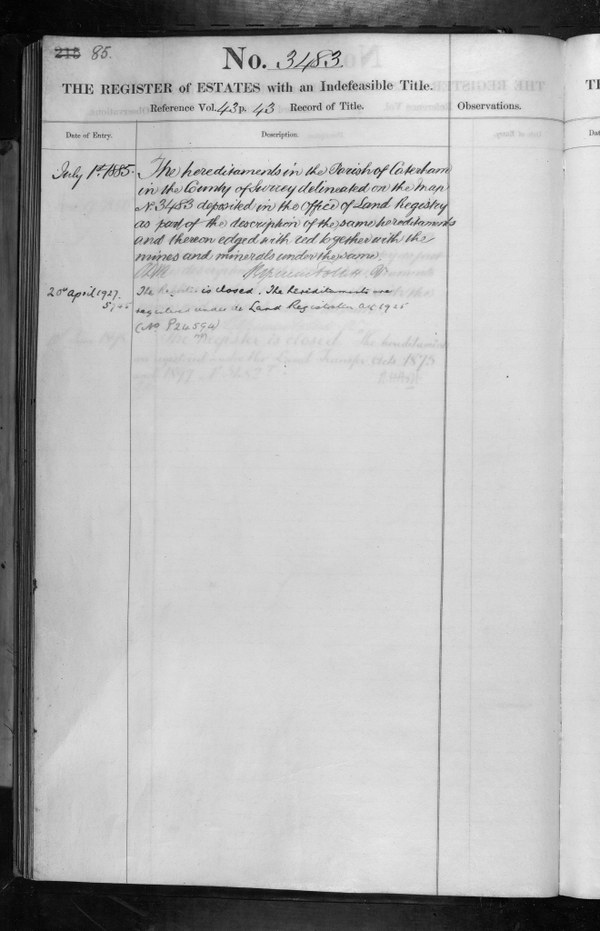 213 85.
No. 3483.
THE REGISTER of ESTATES with an Indefeasible Title.
Reference Vol. 43 p. 43 Record of Title.
Observations.
Date of Entry.
Description.
July 1st 1885.
The hereditaments in the Parish of Caterham
in the County of Surrey delineated on the map
No. 3483 deposited in the Office of Land Registry
as part of the description of the same hereditaments
and thereon edged with red together with the
mines and minerals under the same.
20th April 1927.
The Register is closed. The hereditaments are
registered under the Land Registration Act 1925
(No P 24594)
The Register is closed The hereditaments
are registered under the Land Transfer Acts 1875
and 1897